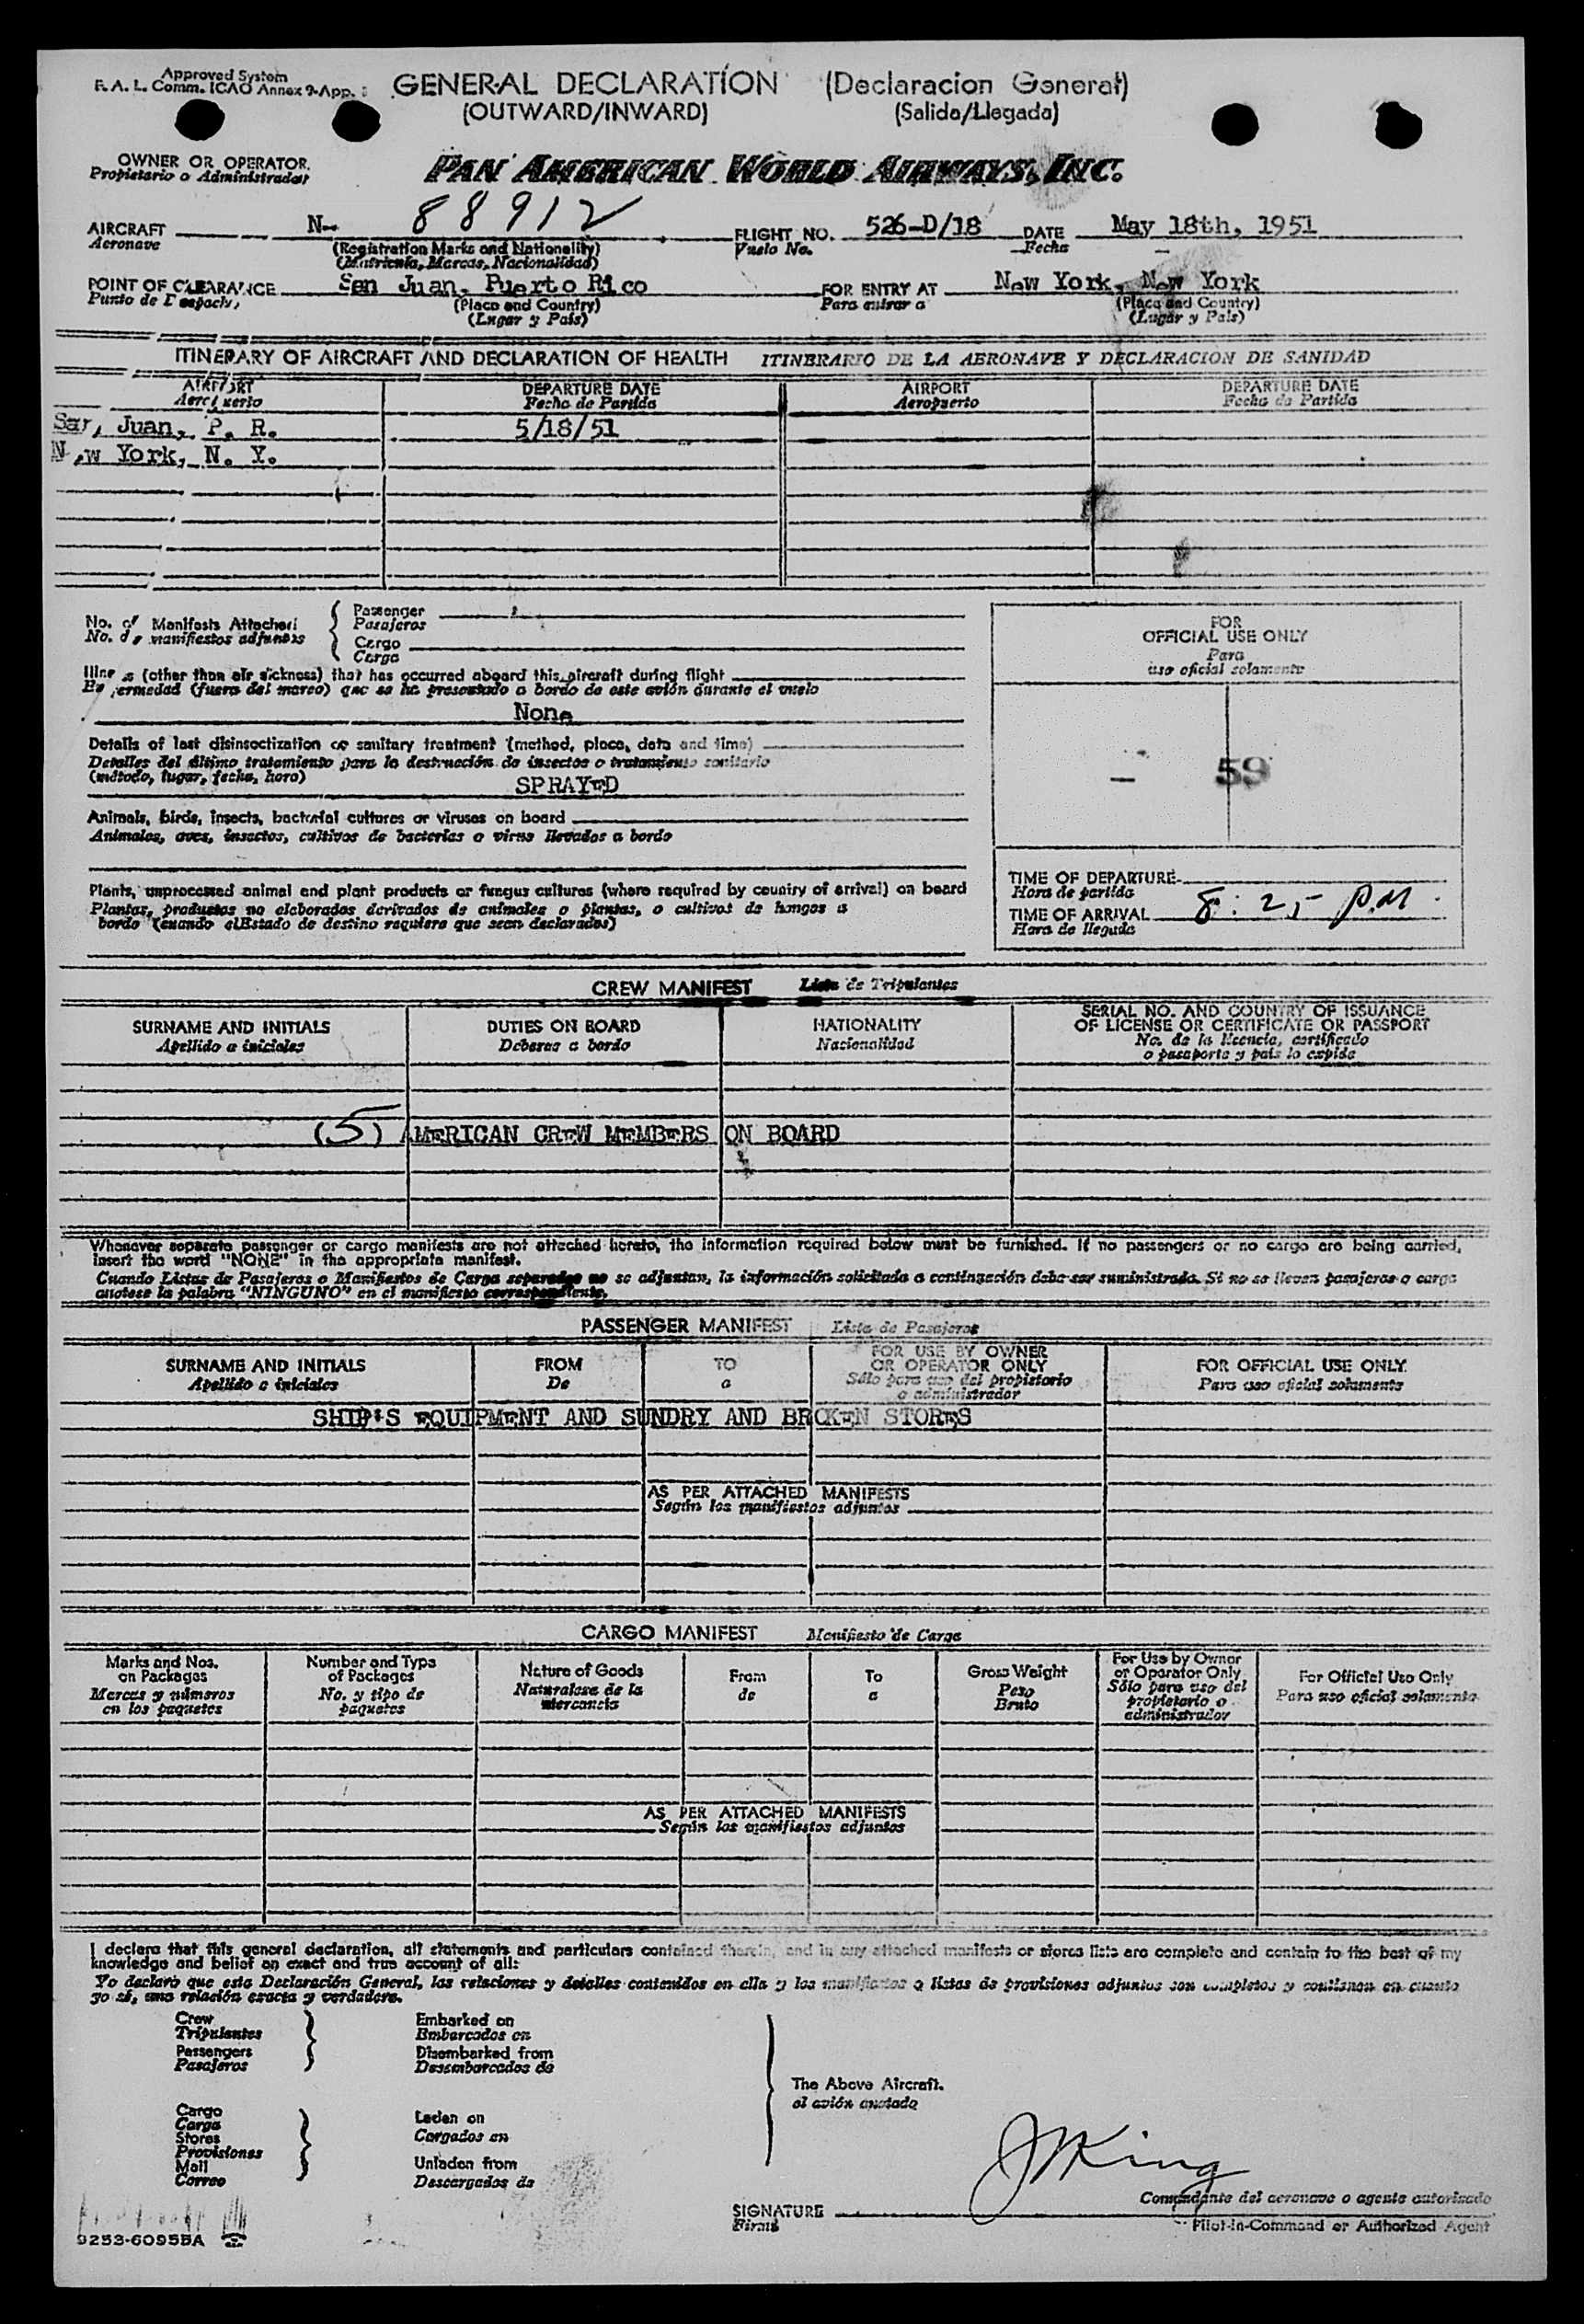 Approved System
F. A. L. Comm. ICAO Annex 9-App.
GENERAL DECLARATION (Declaracion General)
(OUTWARD/INWARD) (Salida/Llegada)
OWNER OR OPERATOR
Propietario o Administrador
PAN AMERICAN WORLD AIRWAYS, INC.
AIRCRAFT N- 88912 FLIGHT NO. 526-D/18 DATE May 18th, 1951
Aeronave (Registration Marks and Nationality) Vuelo No. Fecha
(Matricula, Marcas, Nacionalidad)
POINT OF CLEARANCE San Juan, Puerto Rico FOR ENTRY AT New York, New York
Punto de Despacho (Place and Country) Para entrar a (Place and Country)
(Lugar y Pais) (Lugar y Pais)
ITINERARY OF AIRCRAFT AND DECLARATION OF HEALTH ITINERARIO DE LA AERONAVE Y DECLARACION DE SANIDAD
AIRPORT DEPARTURE DATE AIRPORT DEPARTURE DATE
Aeropuerto Fecha de Partida Aeropuerto Fecha de Partida
San Juan, P. R. 5/18/51
New York, N. Y.
No. of Manifests Attached
No. de manifiestos adjuntos
Passenger
Pasajeros
Cargo
Carga
Illness (other than air sickness) that has occurred aboard this aircraft during flight
Enfermedad (fuera del mareo) que se ha presentado a bordo de este avión durante el vuelo
None
Details of last disinsectization or sanitary treatment (method, place, date and time)
Detalles del último tratamiento para la destrucción de insectos o tratamiento sanitario
(método, lugar, fecha, hora)
SPRAYED
Animals, birds, insects, bacterial cultures or viruses on board
Animales, aves, insectos, cultivos de bacterias o virus llevados a bordo
Plants, unprocessed animal and plant products or fungus cultures (where required by country of arrival) on board
Plantas, productos no elaborados derivados de animales o plantas, o cultivos de hongos a
bordo (cuando el Estado de destino requiera que sean declarados)
FOR
OFFICIAL USE ONLY
Para
uso oficial solamente
- 59
TIME OF DEPARTURE
Hora de partida
TIME OF ARRIVAL 8:25 P.M.
Hora de llegada
CREW MANIFEST Lista de Tripulantes
SURNAME AND INITIALS DUTIES ON BOARD NATIONALITY SERIAL NO. AND COUNTRY OF ISSUANCE
OF LICENSE OR CERTIFICATE OR PASSPORT
Apellido e iniciales Deberes a bordo Nacionalidad No. de la licencia, certificado
o pasaporte y pais lo expide
(5) AMERICAN CREW MEMBERS ON BOARD
Whenever separate passenger or cargo manifests are not attached hereto, the information required below must be furnished. If no passengers or no cargo are being carried,
insert the word "NONE" in the appropriate manifest.
Cuando Listas de Pasajeros o Manifiestos de Carga separados no se adjuntan, la información solicitada a continuación debe ser suministrada. Si no se llevan pasajeros o carga
anotese la palabra "NINGUNO" en el manifiesto correspondiente.
PASSENGER MANIFEST Lista de Pasajeros
SURNAME AND INITIALS FROM TO FOR USE BY OWNER
OR OPERATOR ONLY FOR OFFICIAL USE ONLY
Apellido e iniciales De a Sólo para uso del propietario
o administrador Para uso oficial solamente
SHIP'S EQUIPMENT AND SUNDRY AND BROKEN STORES
AS PER ATTACHED MANIFESTS
Según los manifiestos adjuntos
CARGO MANIFEST Manifiesto de Carga
Marks and Nos.
on Packages
Marcas y números
en los paquetes
Number and Type
of Packages
No. y tipo de
paquetes
Nature of Goods
Naturaleza de la
mercancia
From
de
To
a
Gross Weight
Peso
Bruto
For Use by Owner
or Operator Only
Sólo para uso del
propietario o
administrador
For Official Use Only
Para uso oficial solamente
AS PER ATTACHED MANIFESTS
Según los manifiestos adjuntos
I declare that this general declaration, all statements and particulars contained therein, and in any attached manifests or stores lists are complete and contain to the best of my
knowledge and belief an exact and true account of all:
Yo declaro que esta Declaración General, las relaciones y detalles contenidos en ella y los manifiestos o listas de provisiones adjuntos son completos y contienen en cuanto
yo sé, una relación exacta y verdadera.
Crew
Tripulantes
Passengers
Pasajeros
Embarked on
Embarcados en
Disembarked from
Desembarcados de
The Above Aircraft.
el avión anotado
Cargo
Carga
Stores
Provisiones
Mail
Correo
Laden on
Cargados en
Unladen from
Descargados de
SIGNATURE J King
Firma
Comandante del aeronave o agente autorizado
Pilot-in-Command or Authorized Agent
9253-6095BA